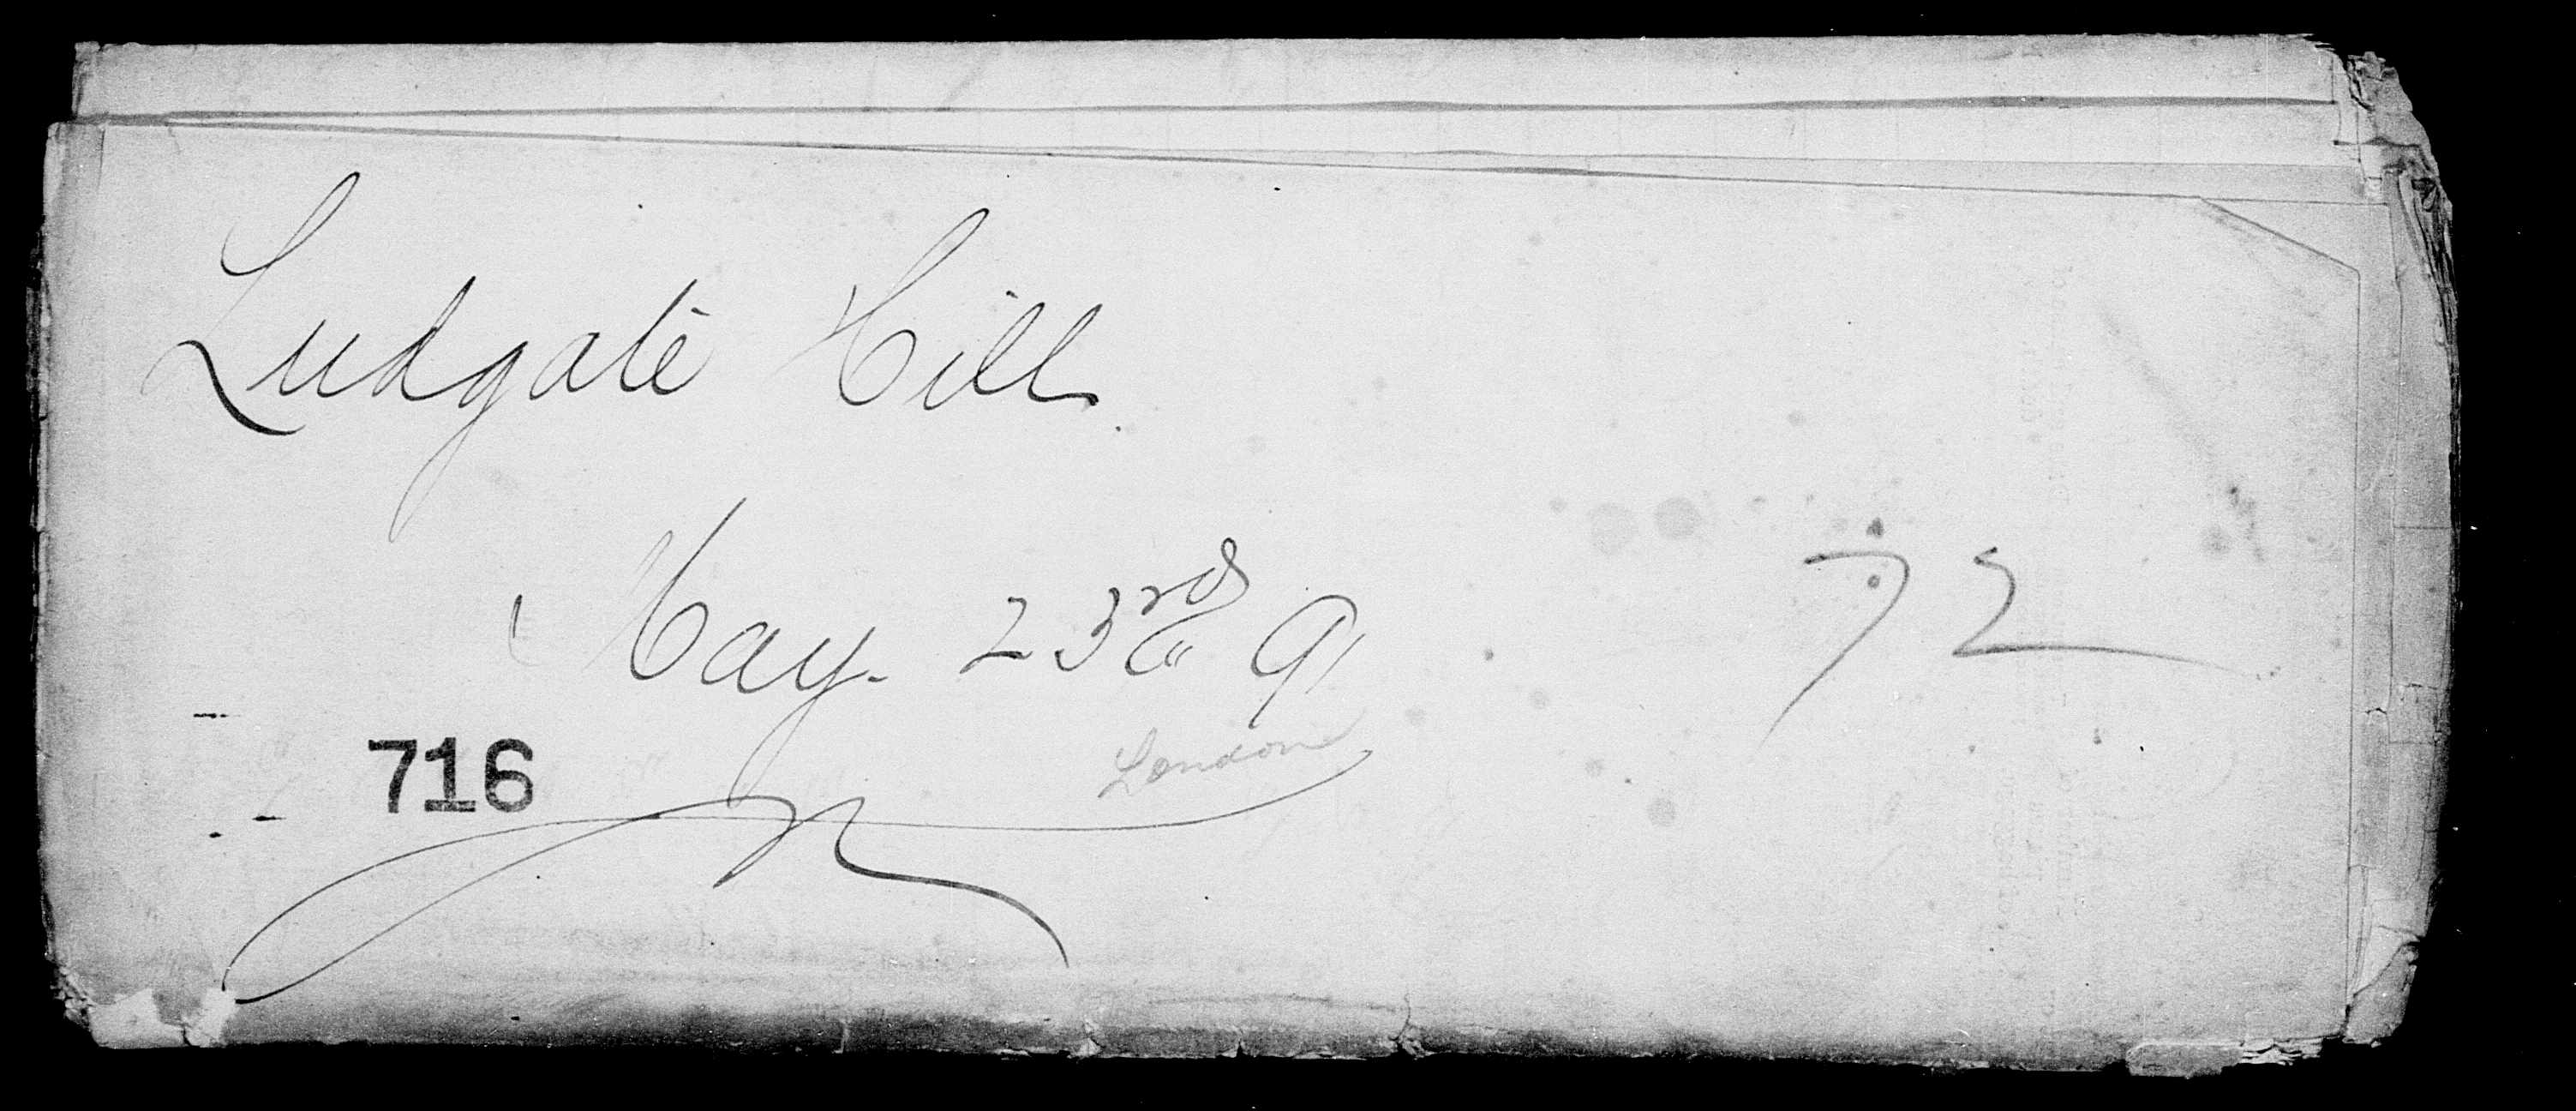 Ludgate Hill
May. 23rd 91
72
London
716